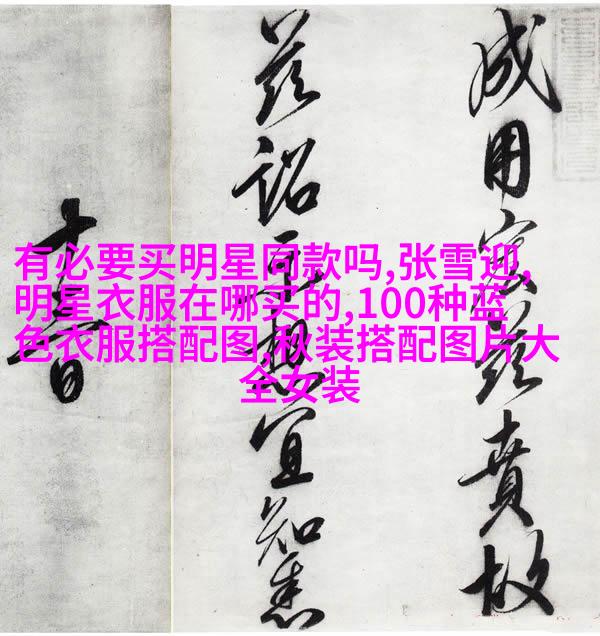 有必要买明星同款吗,张雪迎,
明星衣服在哪买的,100种蓝
色衣服搭配图,秋装搭配图片大
全女装
成用宏兹賁故
兹詔示想宜知悉